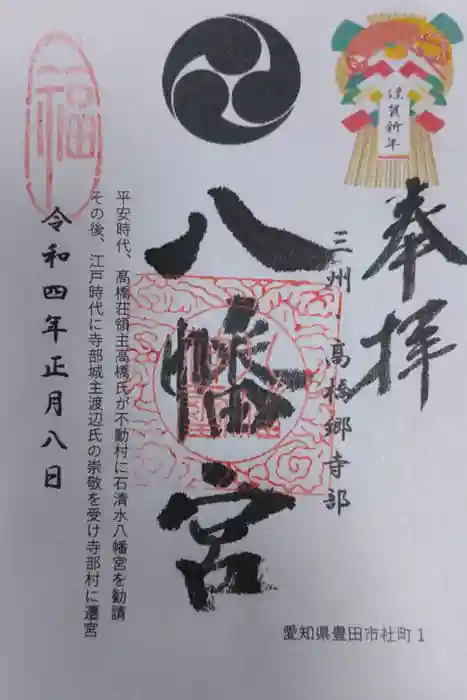 謹賀新年
奉拝
三州・高橋郷寺部
八幡宮
福
平安時代、高橋荘領主高橋氏が不動村に石清水八幡宮を勧請
その後、江戸時代に寺部城主渡辺氏の崇敬を受け寺部村に遷宮
令和四年正月八日
愛知県豊田市社町1